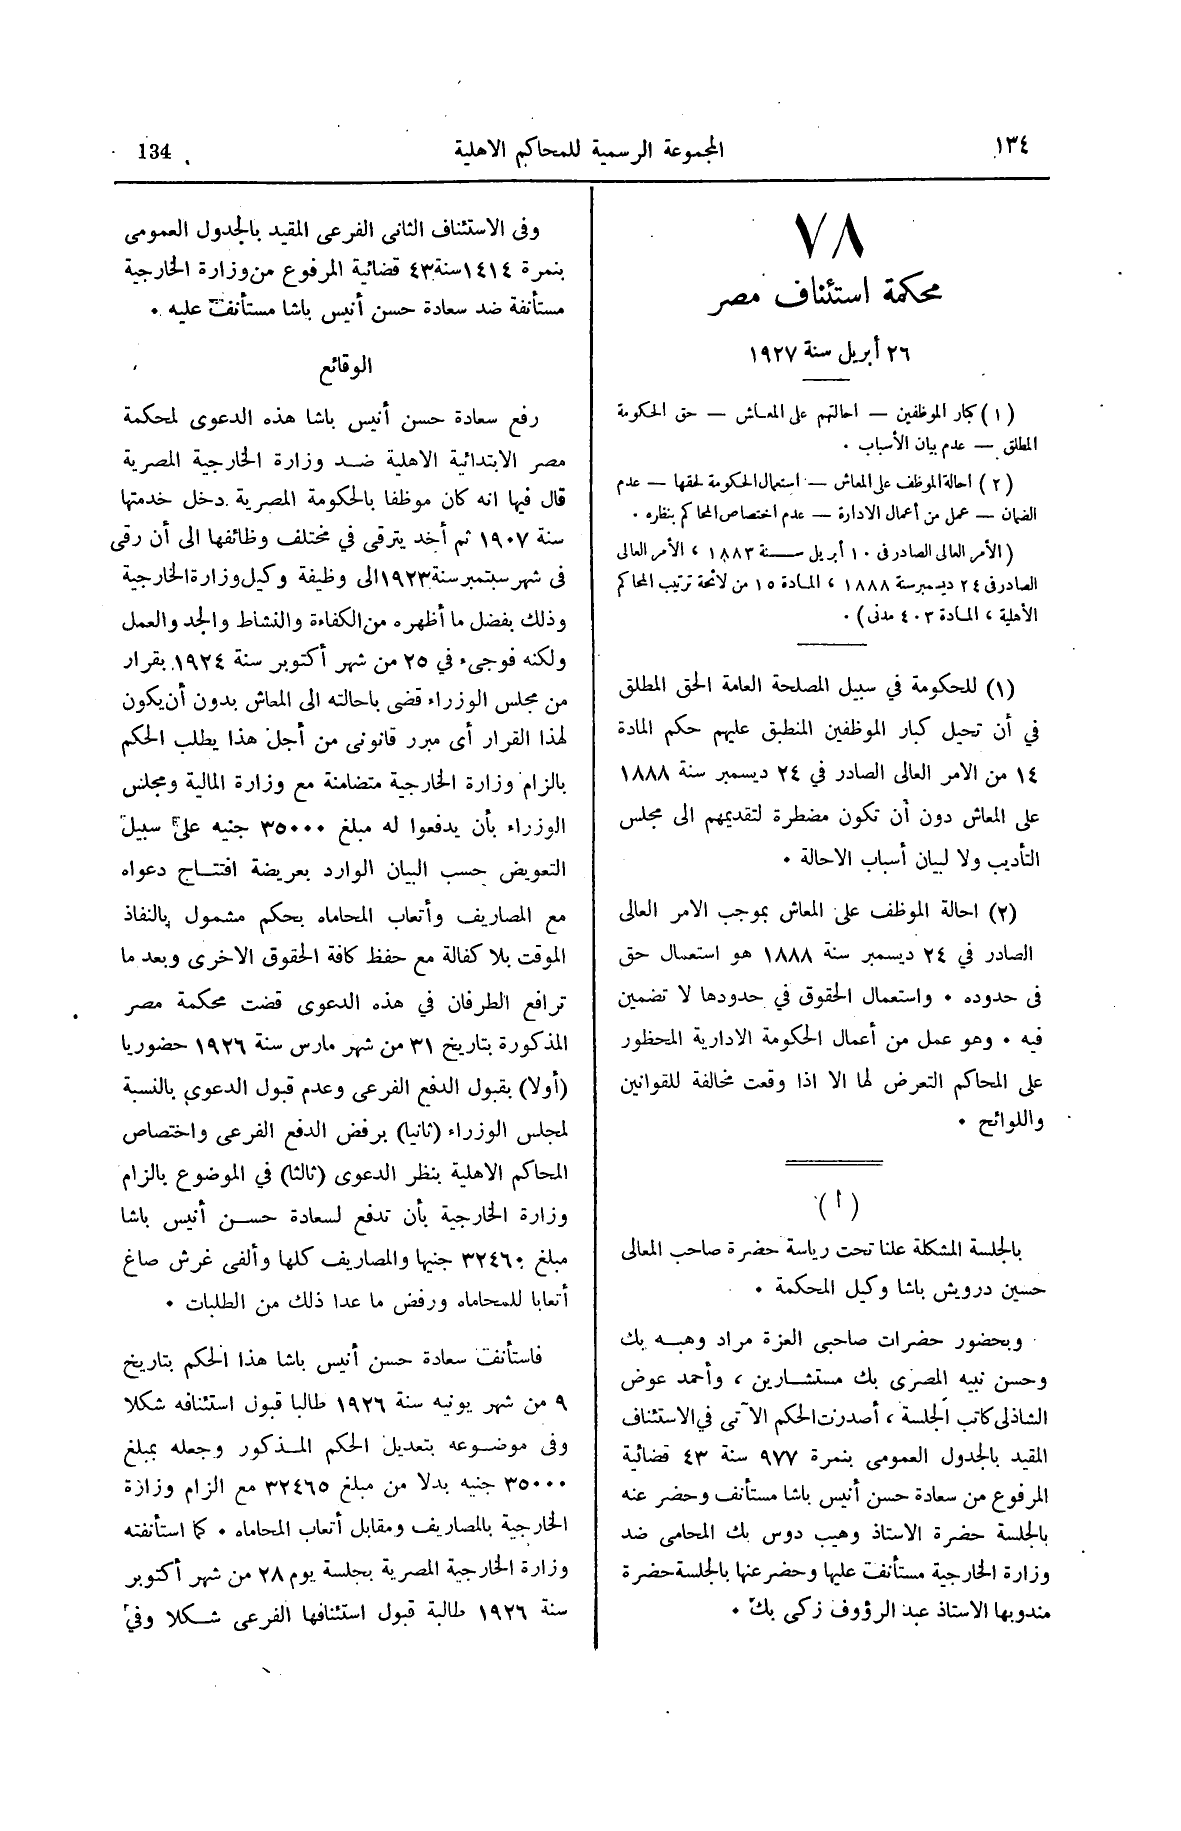 ١٣٤
المجموعة الرسمية للمحاكم الاهلية
134
٧٨
محكمة استئناف مصر
٢٦ أبريل سنة ١٩٢٧
(١) كبار الموظفين — احالتهم على المعاش — حق الحكومة
المطلق — عدم بيان الأسباب .
(٢) احالة الموظف على المعاش — استعمال الحكومة لحقها — عدم
الضمان — عمل من أعمال الادارة — عدم اختصاص المحاكم بنظره .
(الأمر العالى الصادر فى ١٠ أبريل سنة ١٨٨٣ ، الأمر العالى
الصادر فى ٢٤ ديسمبر سنة ١٨٨٨ ، المادة ١٥ من لائحة ترتيب المحاكم
الأهلية ، المادة ٤٠٣ مدنى) .
(١) للحكومة في سبيل المصلحة العامة الحق المطلق
في أن تحيل كبار الموظفين المنطبق عليهم حكم المادة
١٤ من الامر العالى الصادر في ٢٤ ديسمبر سنة ١٨٨٨
على المعاش دون أن تكون مضطرة لتقديمهم الى مجلس
التأديب ولا لبيان أسباب الاحالة .
(٢) احالة الموظف على المعاش بموجب الامر العالى
الصادر في ٢٤ ديسمبر سنة ١٨٨٨ هو استعمال حق
فى حدوده . واستعمال الحقوق في حدودها لا تضمين
فيه . وهو عمل من أعمال الحكومة الادارية المحظور
على المحاكم التعرض لها الا اذا وقعت مخالفة للقوانين
واللوائح .
(أ)
بالجلسة المشكلة علنا تحت رياسة حضرة صاحب المعالى
حسين درويش باشا وكيل المحكمة .
وبحضور حضرات صاحبى العزة مراد وهبه بك
وحسن نبيه المصرى بك مستشارين ، وأحمد عوض
الشاذلى كاتب الجلسة ، أصدرت الحكم الآتى في الاستئناف
المقيد بالجدول العمومى بنمرة ٩٧٧ سنة ٤٣ قضائية
المرفوع من سعادة حسن أنيس باشا مستأنف وحضر عنه
بالجلسة حضرة الاستاذ وهيب دوس بك المحامى ضد
وزارة الخارجية مستأنف عليها وحضر عنها بالجلسة حضرة
مندوبها الاستاذ عبد الرؤوف زكى بك .
وفى الاستئناف الثانى الفرعى المقيد بالجدول العمومى
بنمرة ١٤١٤ سنة ٤٣ قضائية المرفوع من وزارة الخارجية
مستأنفة ضد سعادة حسن أنيس باشا مستأنف عليه .
الوقائع
رفع سعادة حسن أنيس باشا هذه الدعوى لمحكمة
مصر الابتدائية الاهلية ضد وزارة الخارجية المصرية
قال فيها انه كان موظفا بالحكومة المصرية دخل خدمتها
سنة ١٩٠٧ ثم أخد يترقى في مختلف وظائفها الى أن رقى
فى شهر سبتمبر سنة ١٩٢٣ الى وظيفة وكيل وزارة الخارجية
وذلك بفضل ما أظهره من الكفاءة والنشاط والجد والعمل
ولكنه فوجىء في ٢٥ من شهر أكتوبر سنة ١٩٢٤ بقرار
من مجلس الوزراء قضى باحالته الى المعاش بدون أن يكون
لهذا القرار أى مبرر قانونى من أجل هذا يطلب الحكم
بالزام وزارة الخارجية متضامنة مع وزارة المالية ومجلس
الوزراء بأن يدفعوا له مبلغ ٣٥٠٠٠ جنيه على سبيل
التعويض حسب البيان الوارد بعريضة افتتاح دعواه
مع المصاريف وأتعاب المحاماه بحكم مشمول بالنفاذ
الموقت بلا كفالة مع حفظ كافة الحقوق الاخرى وبعد ما
ترافع الطرفان في هذه الدعوى قضت محكمة مصر
المذكورة بتاريخ ٣١ من شهر مارس سنة ١٩٢٦ حضوريا
(أولا) بقبول الدفع الفرعى وعدم قبول الدعوى بالنسبة
لمجلس الوزراء (ثانيا) برفض الدفع الفرعى واختصاص
المحاكم الاهلية بنظر الدعوى (ثالثا) في الموضوع بالزام
وزارة الخارجية بأن تدفع لسعادة حسن أنيس باشا
مبلغ ٣٢٤٦٠ جنيها والمصاريف كلها وألفى غرش صاغ
أتعابا للمحاماه ورفض ما عدا ذلك من الطلبات .
فاستأنف سعادة حسن أنيس باشا هذا الحكم بتاريخ
٩ من شهر يونيه سنة ١٩٢٦ طالبا قبول استئنافه شكلا
وفى موضوعه بتعديل الحكم المذكور وجعله بمبلغ
٣٥٠٠٠ جنيه بدلا من مبلغ ٣٢٤٦٥ مع الزام وزارة
الخارجية بالمصاريف ومقابل أتعاب المحاماه . كما استأنفته
وزارة الخارجية المصرية بجلسة يوم ٢٨ من شهر أكتوبر
سنة ١٩٢٦ طالبة قبول استئنافها الفرعى شكلا وفي